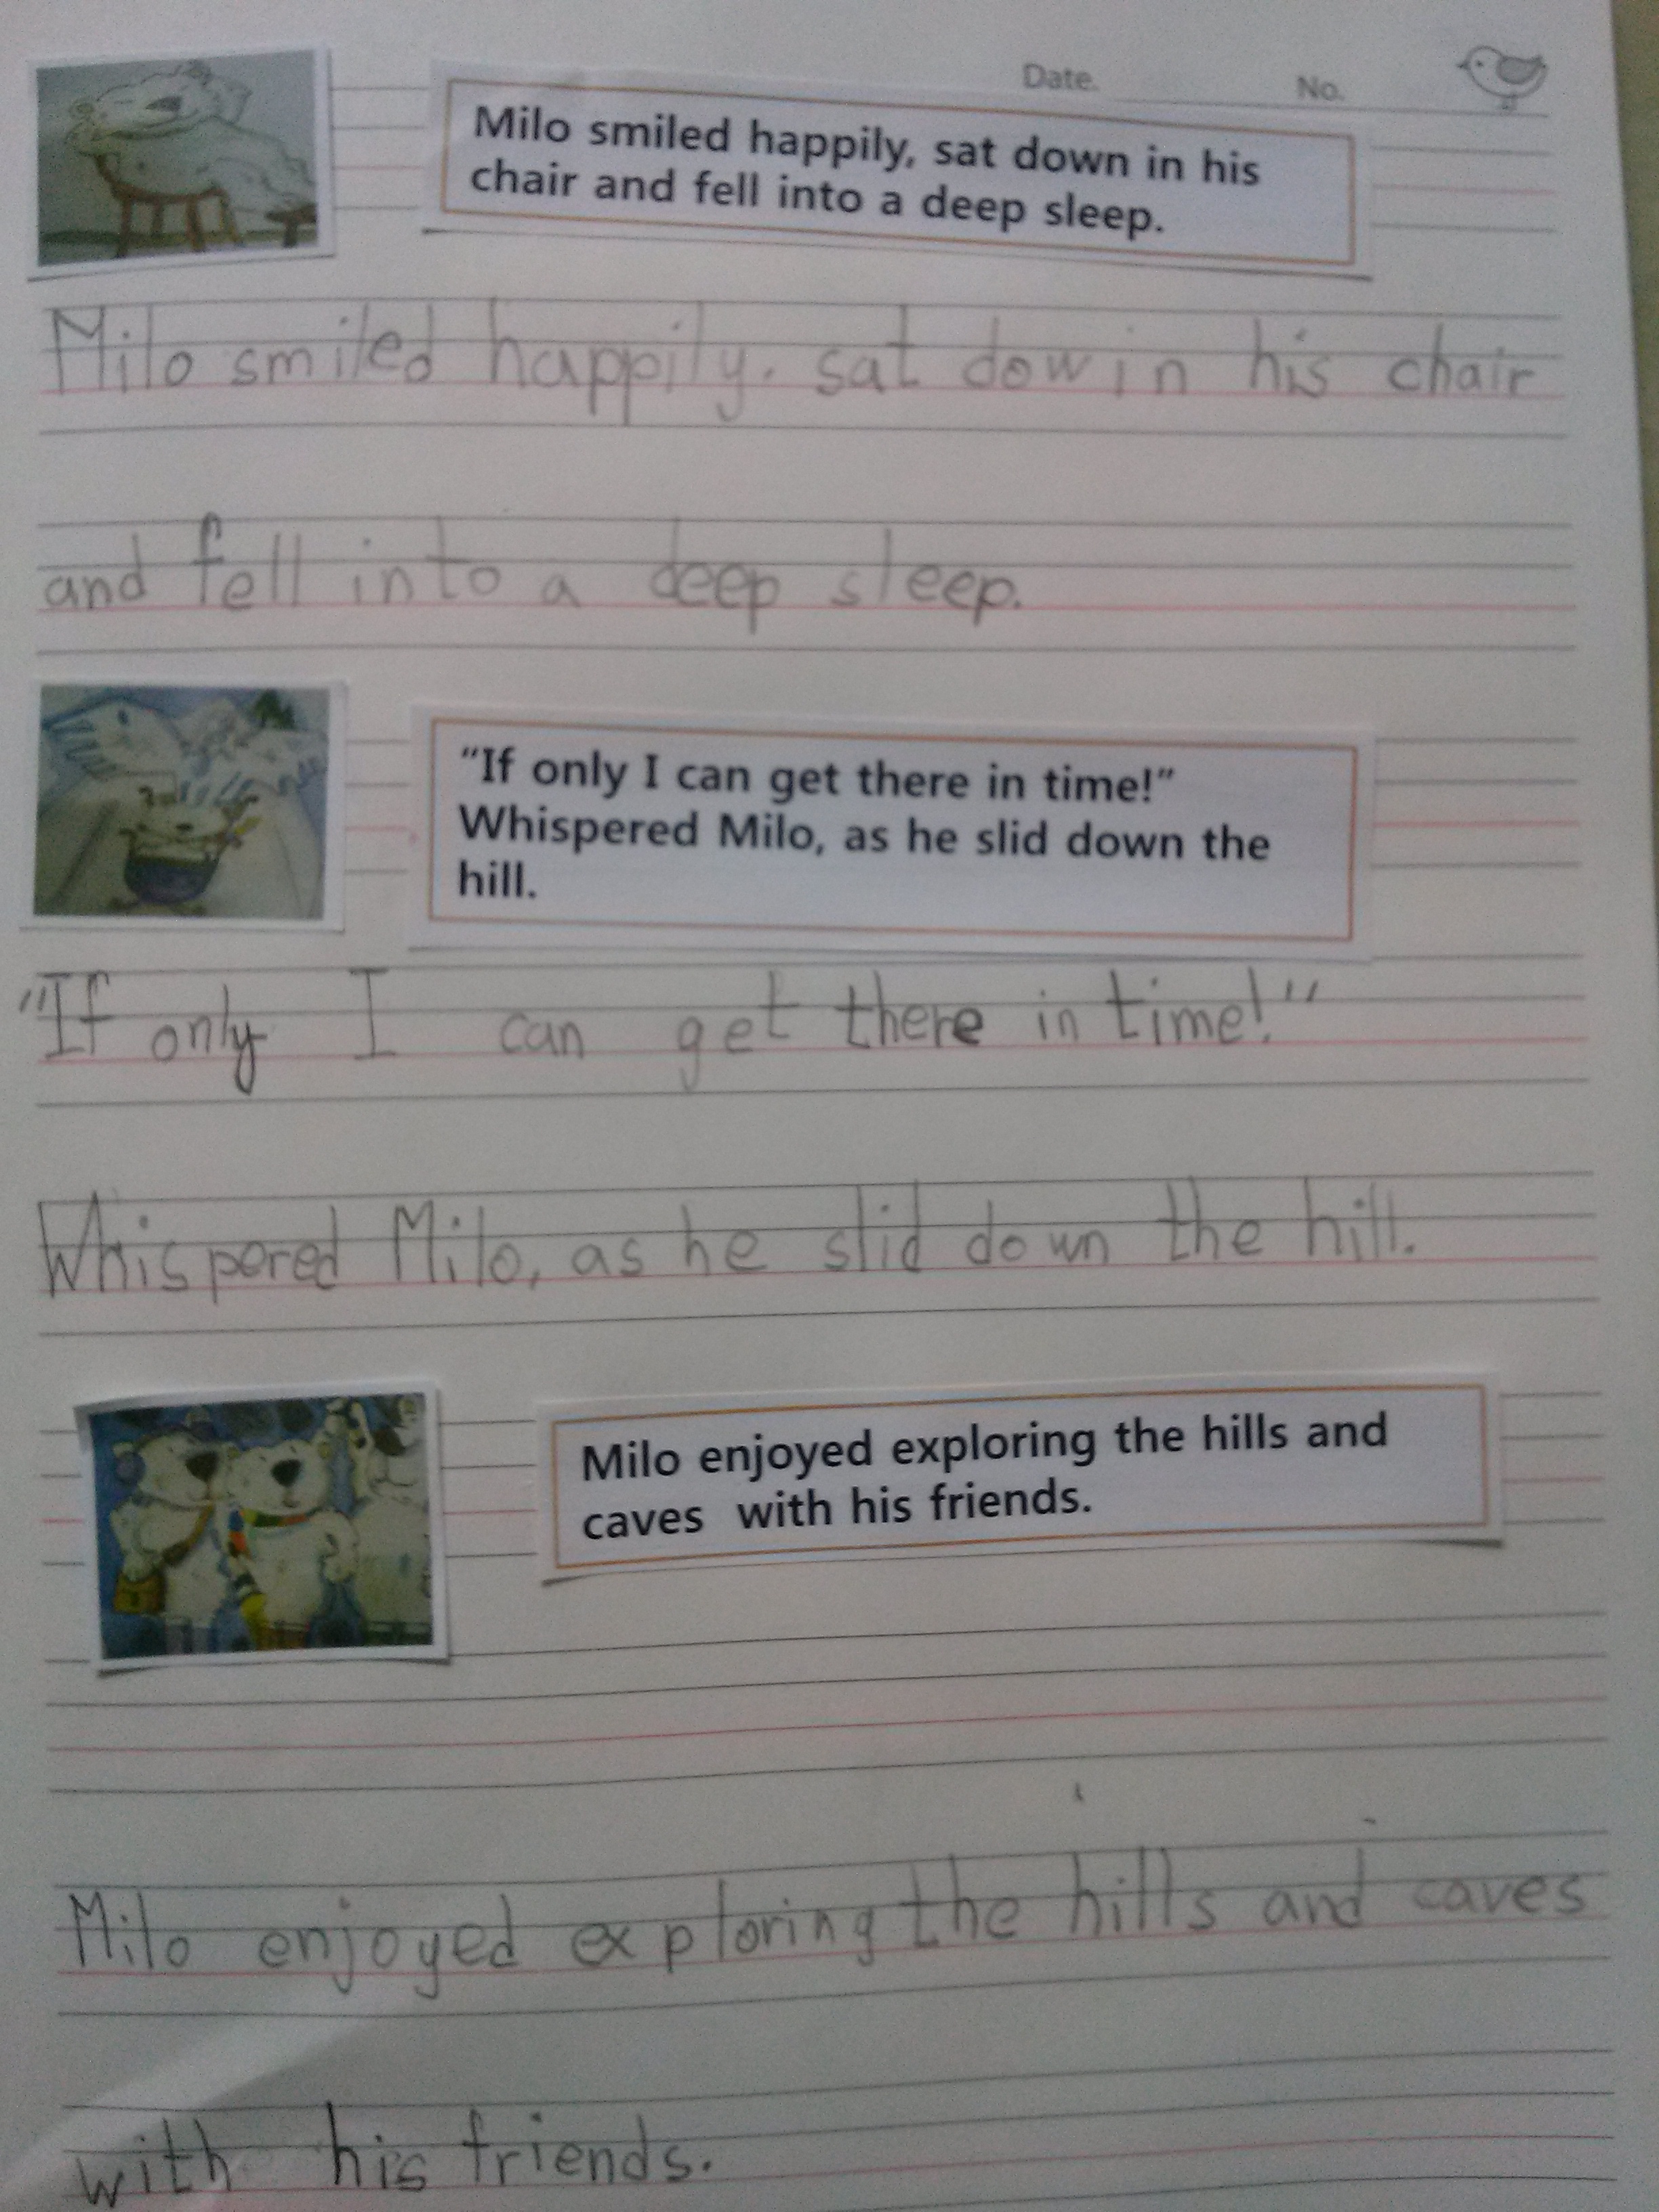 Date.
No.
Milo smiled happily, sat down in his
chair and fell into a deep sleep.
Milo smiled happily. sat dow in his chair
and fell into a deep sleep.
“If only I can get there in time!”
Whispered Milo, as he slid down the
hill.
"If only I can get there in time!"
Whispered Milo, as he slid down the hill.
Milo enjoyed exploring the hills and
caves with his friends.
Milo enjoyed exploring the hills and caves
with his friends.